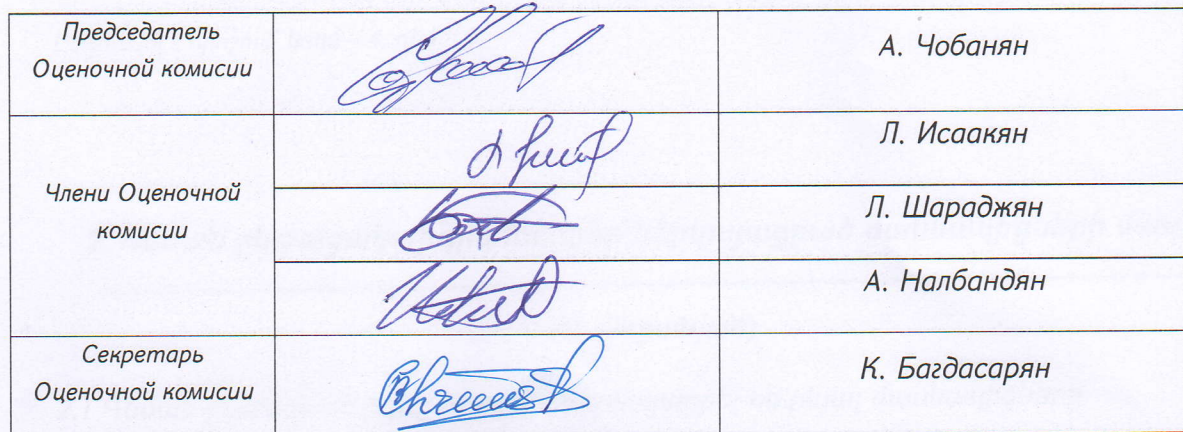 Председатель
Оценочной комисии
А. Чобанян
Члени Оценочной
комисии
Л. Исаакян
Л. Шараджян
А. Налбандян
Секретарь
Оценочной комисии
К. Багдасарян